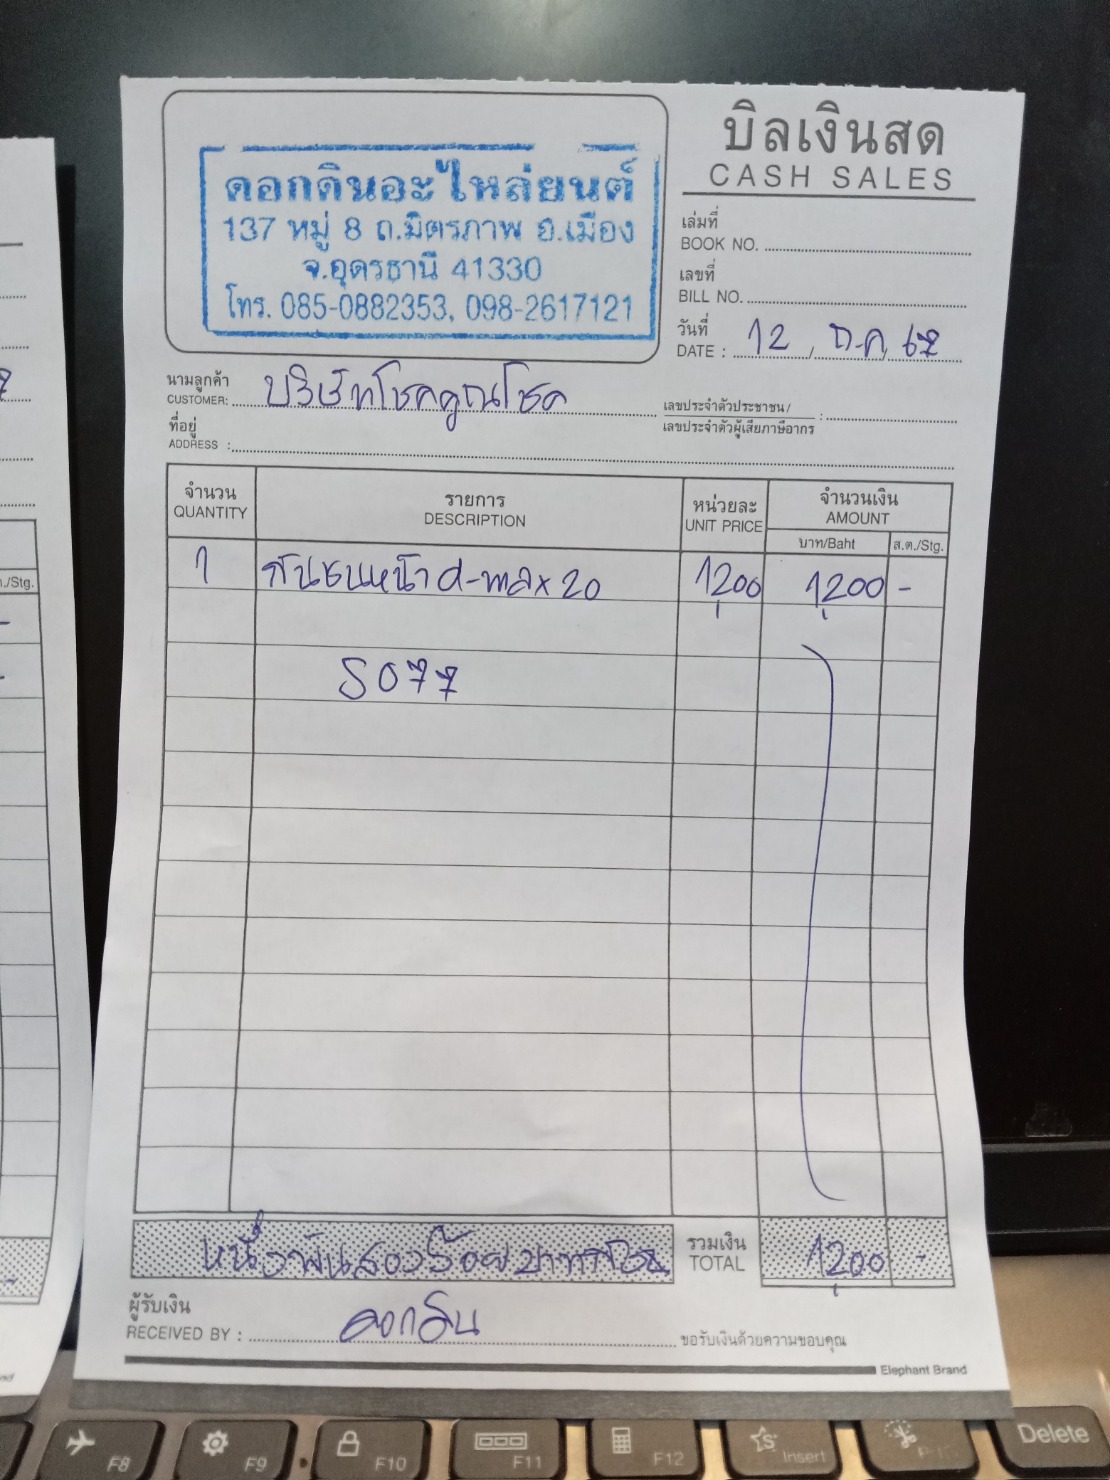 บิลเงินสด
CASH SALES
ดอกดินอะไหล่ยนต์
137 หมู่ 8 ถ.มิตรภาพ อ.เมือง
จ.อุดรธานี 41330
โทร. 085-0882353, 098-2617121
เล่มที่
BOOK NO.
เลขที่
BILL NO.
วันที่
DATE : 12 / ต.ค / 67
นามลูกค้า
CUSTOMER: บริษัทโชคคูณโชค
เลขประจำตัวประชาชน /
เลขประจำตัวผู้เสียภาษีอากร :
ที่อยู่
ADDRESS :
จำนวน รายการ หน่วยละ จำนวนเงิน
QUANTITY DESCRIPTION UNIT PRICE AMOUNT
บาท/Baht ส.ต./Stg.
1 กันชนหน้า d-max 20 1,200 1,200 -
S077
หนึ่งพันสองร้อยบาท รวมเงิน
TOTAL 1,200 -
ผู้รับเงิน
RECEIVED BY : ดอกดิน ขอรับเงินด้วยความขอบคุณ
Elephant Brand
./Stg.
F8 F9 F10 F11 F12 Insert Delete